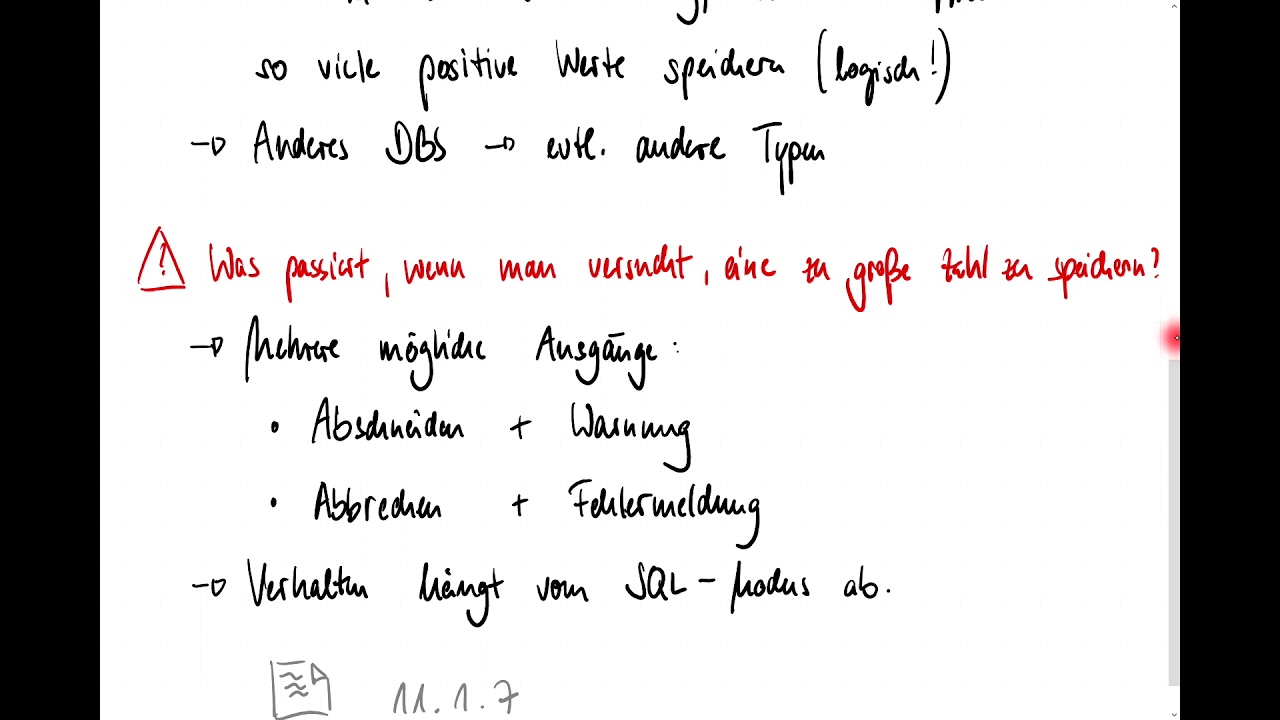 so viele positive Werte speichern (logisch!)
→ Anderes DBS → evtl. andere Typen
Was passiert, wenn man versucht, eine zu große Zahl zu speichern?
→ Mehrere mögliche Ausgänge:
• Abschneiden + Warnung
• Abbrechen + Fehlermeldung
→ Verhalten hängt vom SQL-Modus ab.
11.1.7